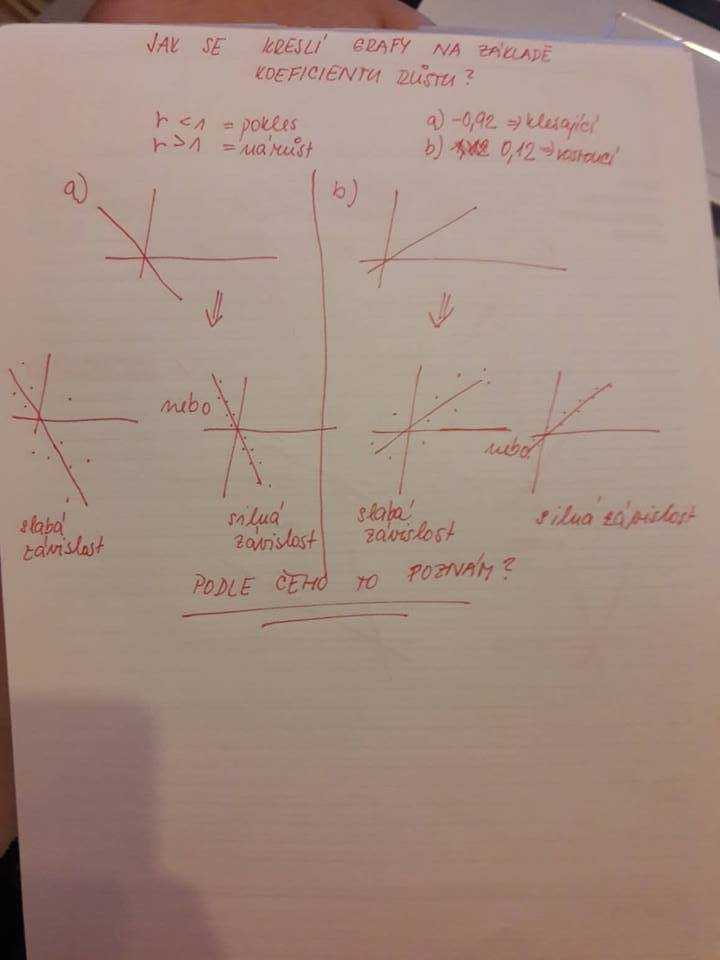 JAK SE KRESLÍ GRAFY NA ZÁKLADĚ
KOEFICIENTU RŮSTU?
r < 1 = pokles
r > 1 = nárůst
a) -0,92 ⇒ klesající
b) 0,12 ⇒ rostoucí
a)
b)
nebo
nebo
slabá
závislost
silná
závislost
slabá
závislost
silná závislost
PODLE ČEHO TO POZNÁM?